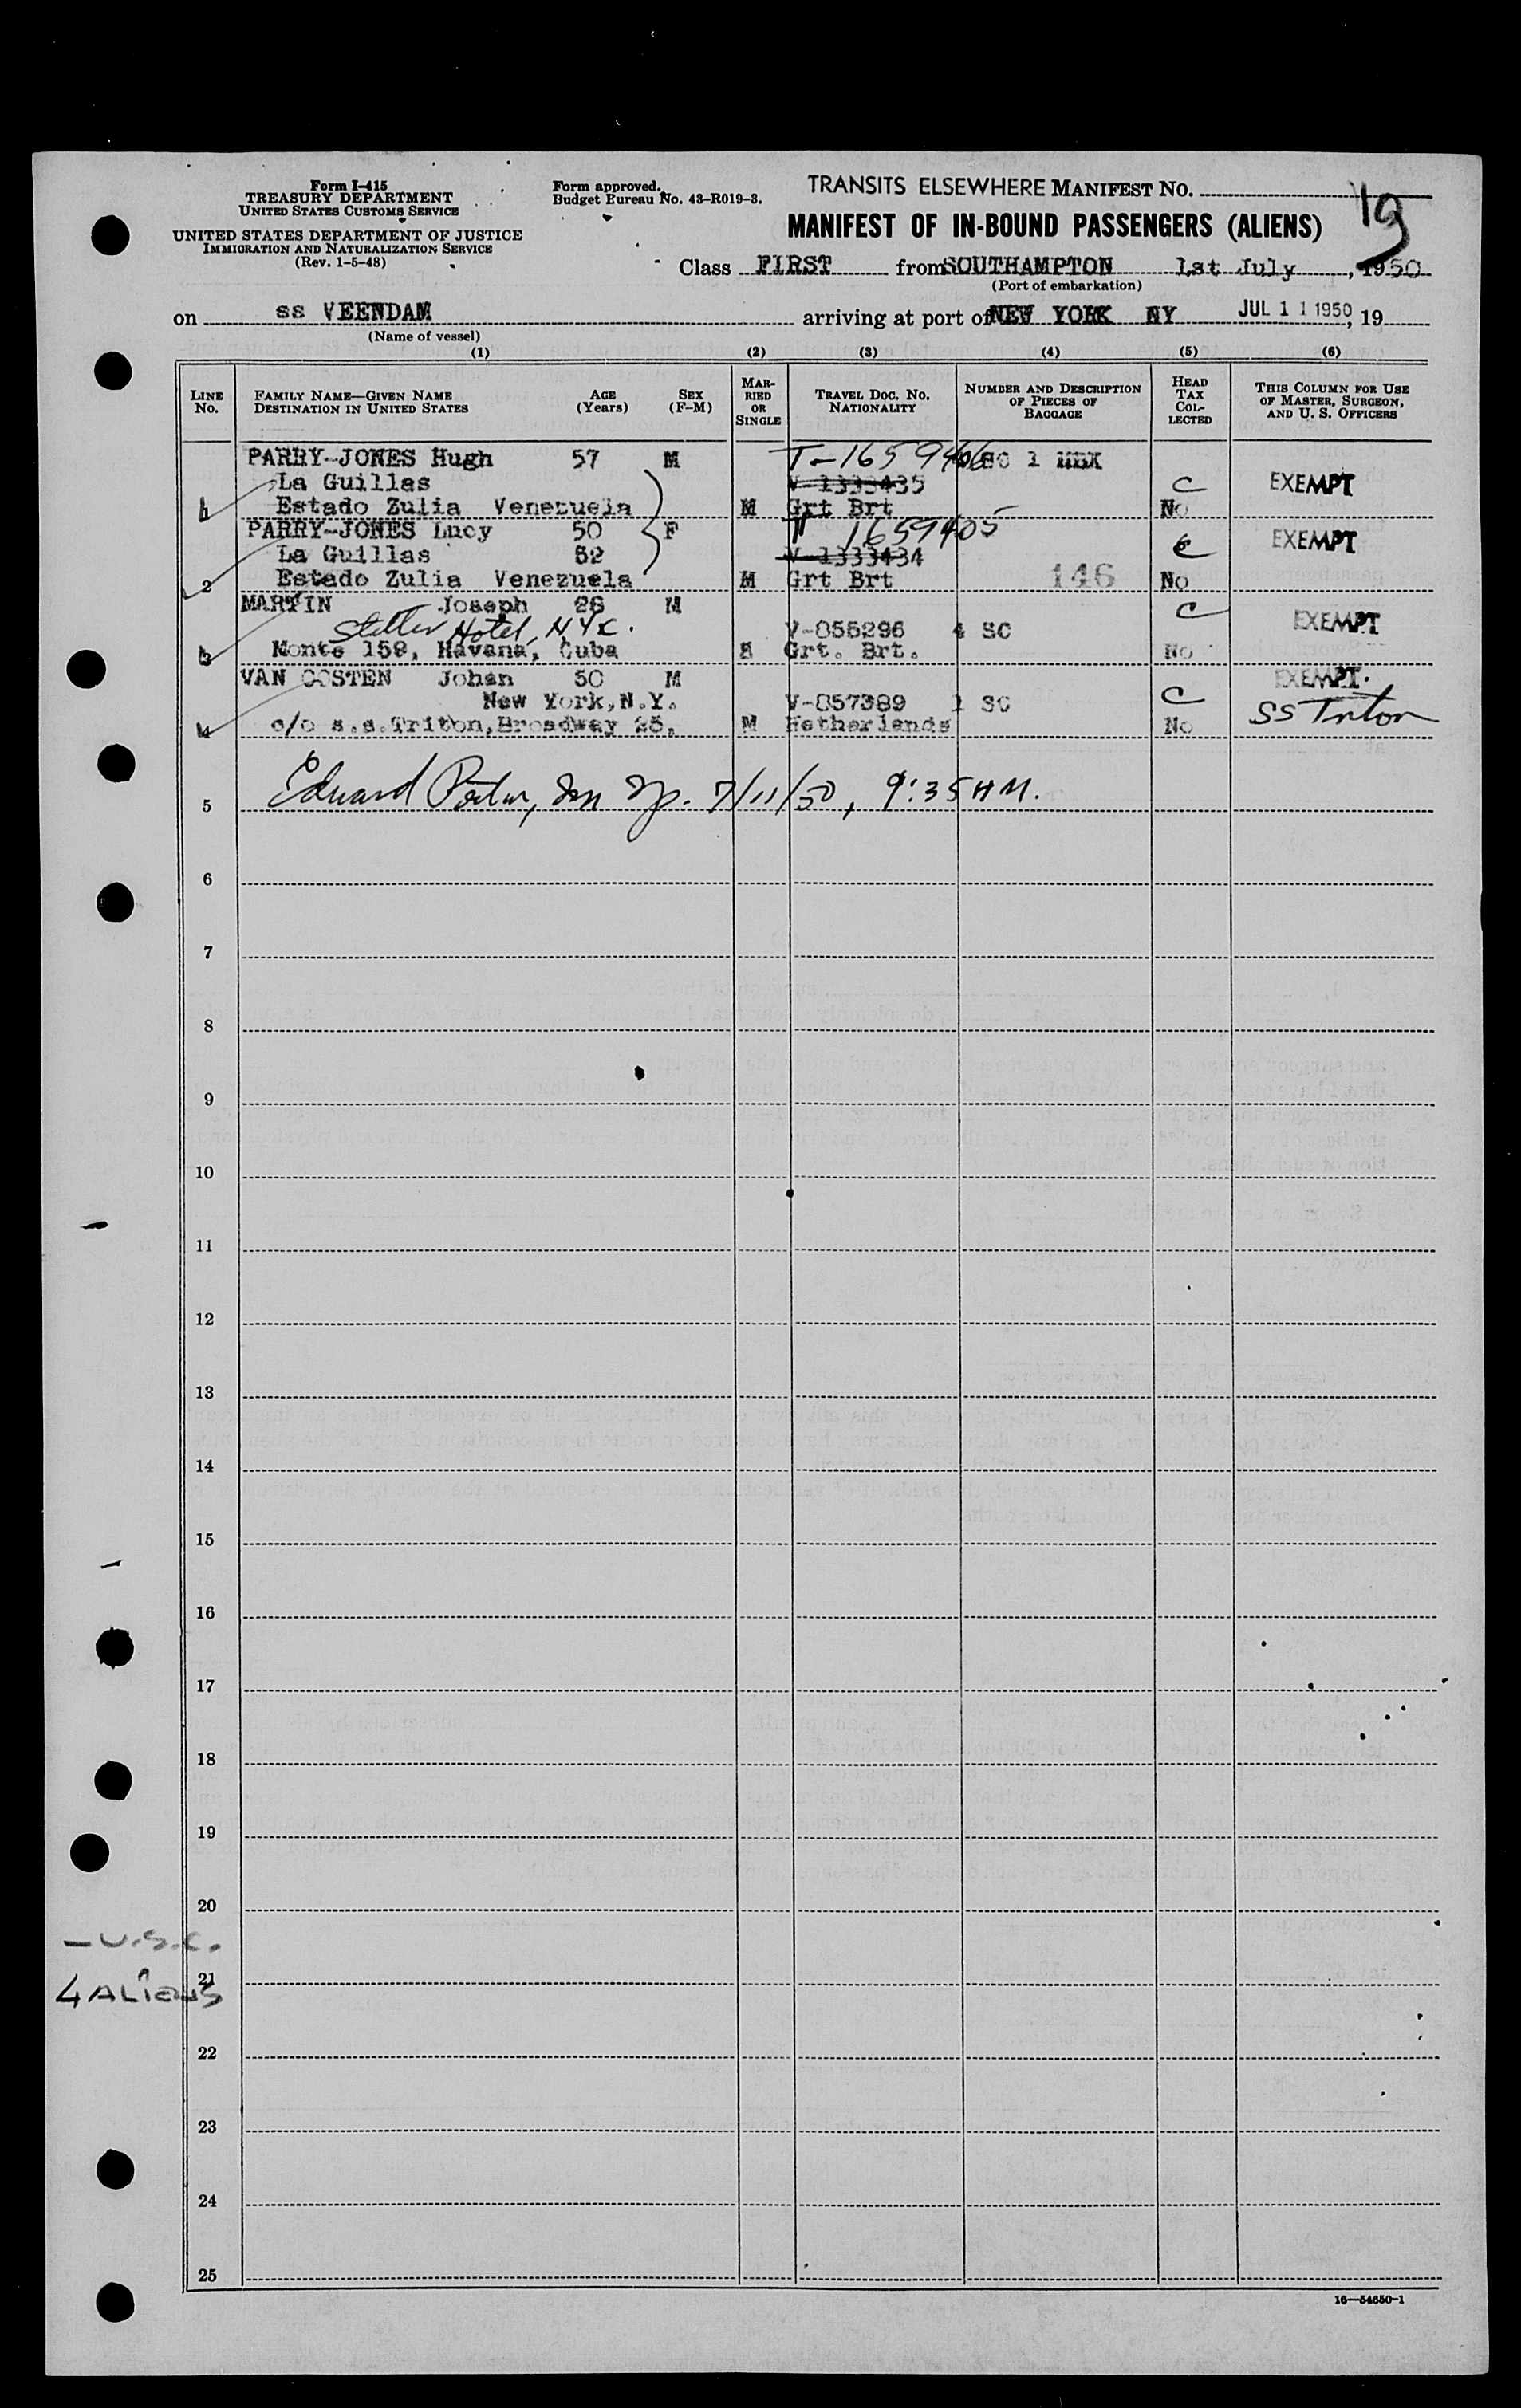 Form I-415
TREASURY DEPARTMENT
UNITED STATES CUSTOMS SERVICE
UNITED STATES DEPARTMENT OF JUSTICE
IMMIGRATION AND NATURALIZATION SERVICE
(Rev. 1-5-48)
Form approved.
Budget Bureau No. 43-R019-3.
TRANSITS ELSEWHERE MANIFEST NO. 19
MANIFEST OF IN-BOUND PASSENGERS (ALIENS)
Class FIRST from SOUTHAMPTON 1st July, 1950
(Port of embarkation)
on ss VEENDAM arriving at port of NEW YORK NY JUL 11 1950, 19
(Name of vessel)
(1) (2) (3) (4) (5) (6)
LINE NO.
FAMILY NAME—GIVEN NAME
DESTINATION IN UNITED STATES
AGE (Years)
SEX (F-M)
MARRIED OR SINGLE
TRAVEL DOC. NO.
NATIONALITY
NUMBER AND DESCRIPTION OF PIECES OF BAGGAGE
HEAD TAX COLLECTED
THIS COLUMN FOR USE OF MASTER, SURGEON, AND U. S. OFFICERS
PARRY-JONES Hugh 57 M T-1659406 SC 1 HBX
La Guillas V-1333435 C EXEMPT
1 Estado Zulia Venezuela M Grt Brt No
PARRY-JONES Lucy 50 F T 1659405
La Guillas 52 V-1333434 C EXEMPT
2 Estado Zulia Venezuela M Grt Brt 146 No
MARTIN Joseph 26 M C EXEMPT
Hotel, N.Y.C. V-055296 4 SC
3 Monte 159, Havana, Cuba S Grt. Brt. No
VAN OOSTEN Johan 50 M EXEMPT.
New York, N.Y. V-057389 1 SC C SS Triton
4 c/o s.s. Triton, Broadway 25, M Netherlands No
5 Edward 7/11/50, 9:35 AM.
6
7
8
9
10
11
12
13
14
15
16
17
18
19
20
- U.S.C.
21
4 ALiens
22
23
24
25
16—54650-1